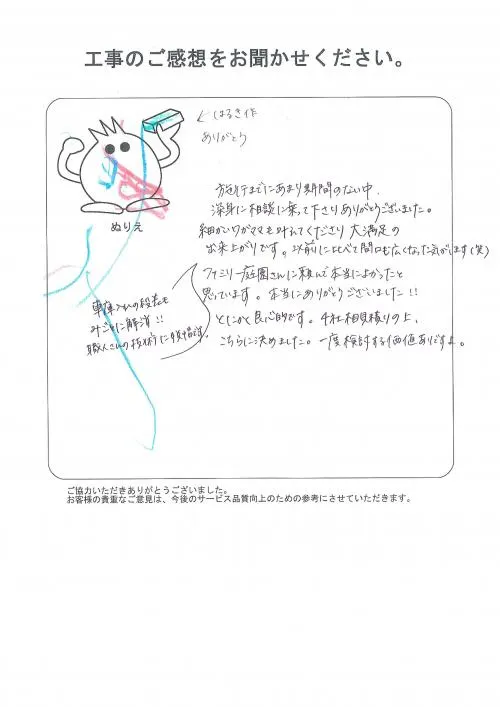 工事のご感想をお聞かせください。
← はるき作
ありがとう
ぬりえ
施行までにあまり期間のない中、
深身に相談に乗って下さりありがとうございました。
細かいワガママも叶えてくださり 大満足の
出来上がりです。以前に比べて間口も広くなった気がします(笑)
ファミリー庭園さんに頼んで本当によかったと
思っています。本当にありがとうございました!!
とにかく良心的です。4社相見積りの上、
こちらに決めました。一度検討する価値ありですよ。
車庫入れの段差も
みごとに解消!!
職人さんの技術に
ご協力いただきありがとうございました。
お客様の貴重なご意見は、今後のサービス品質向上のための参考にさせていただきます。